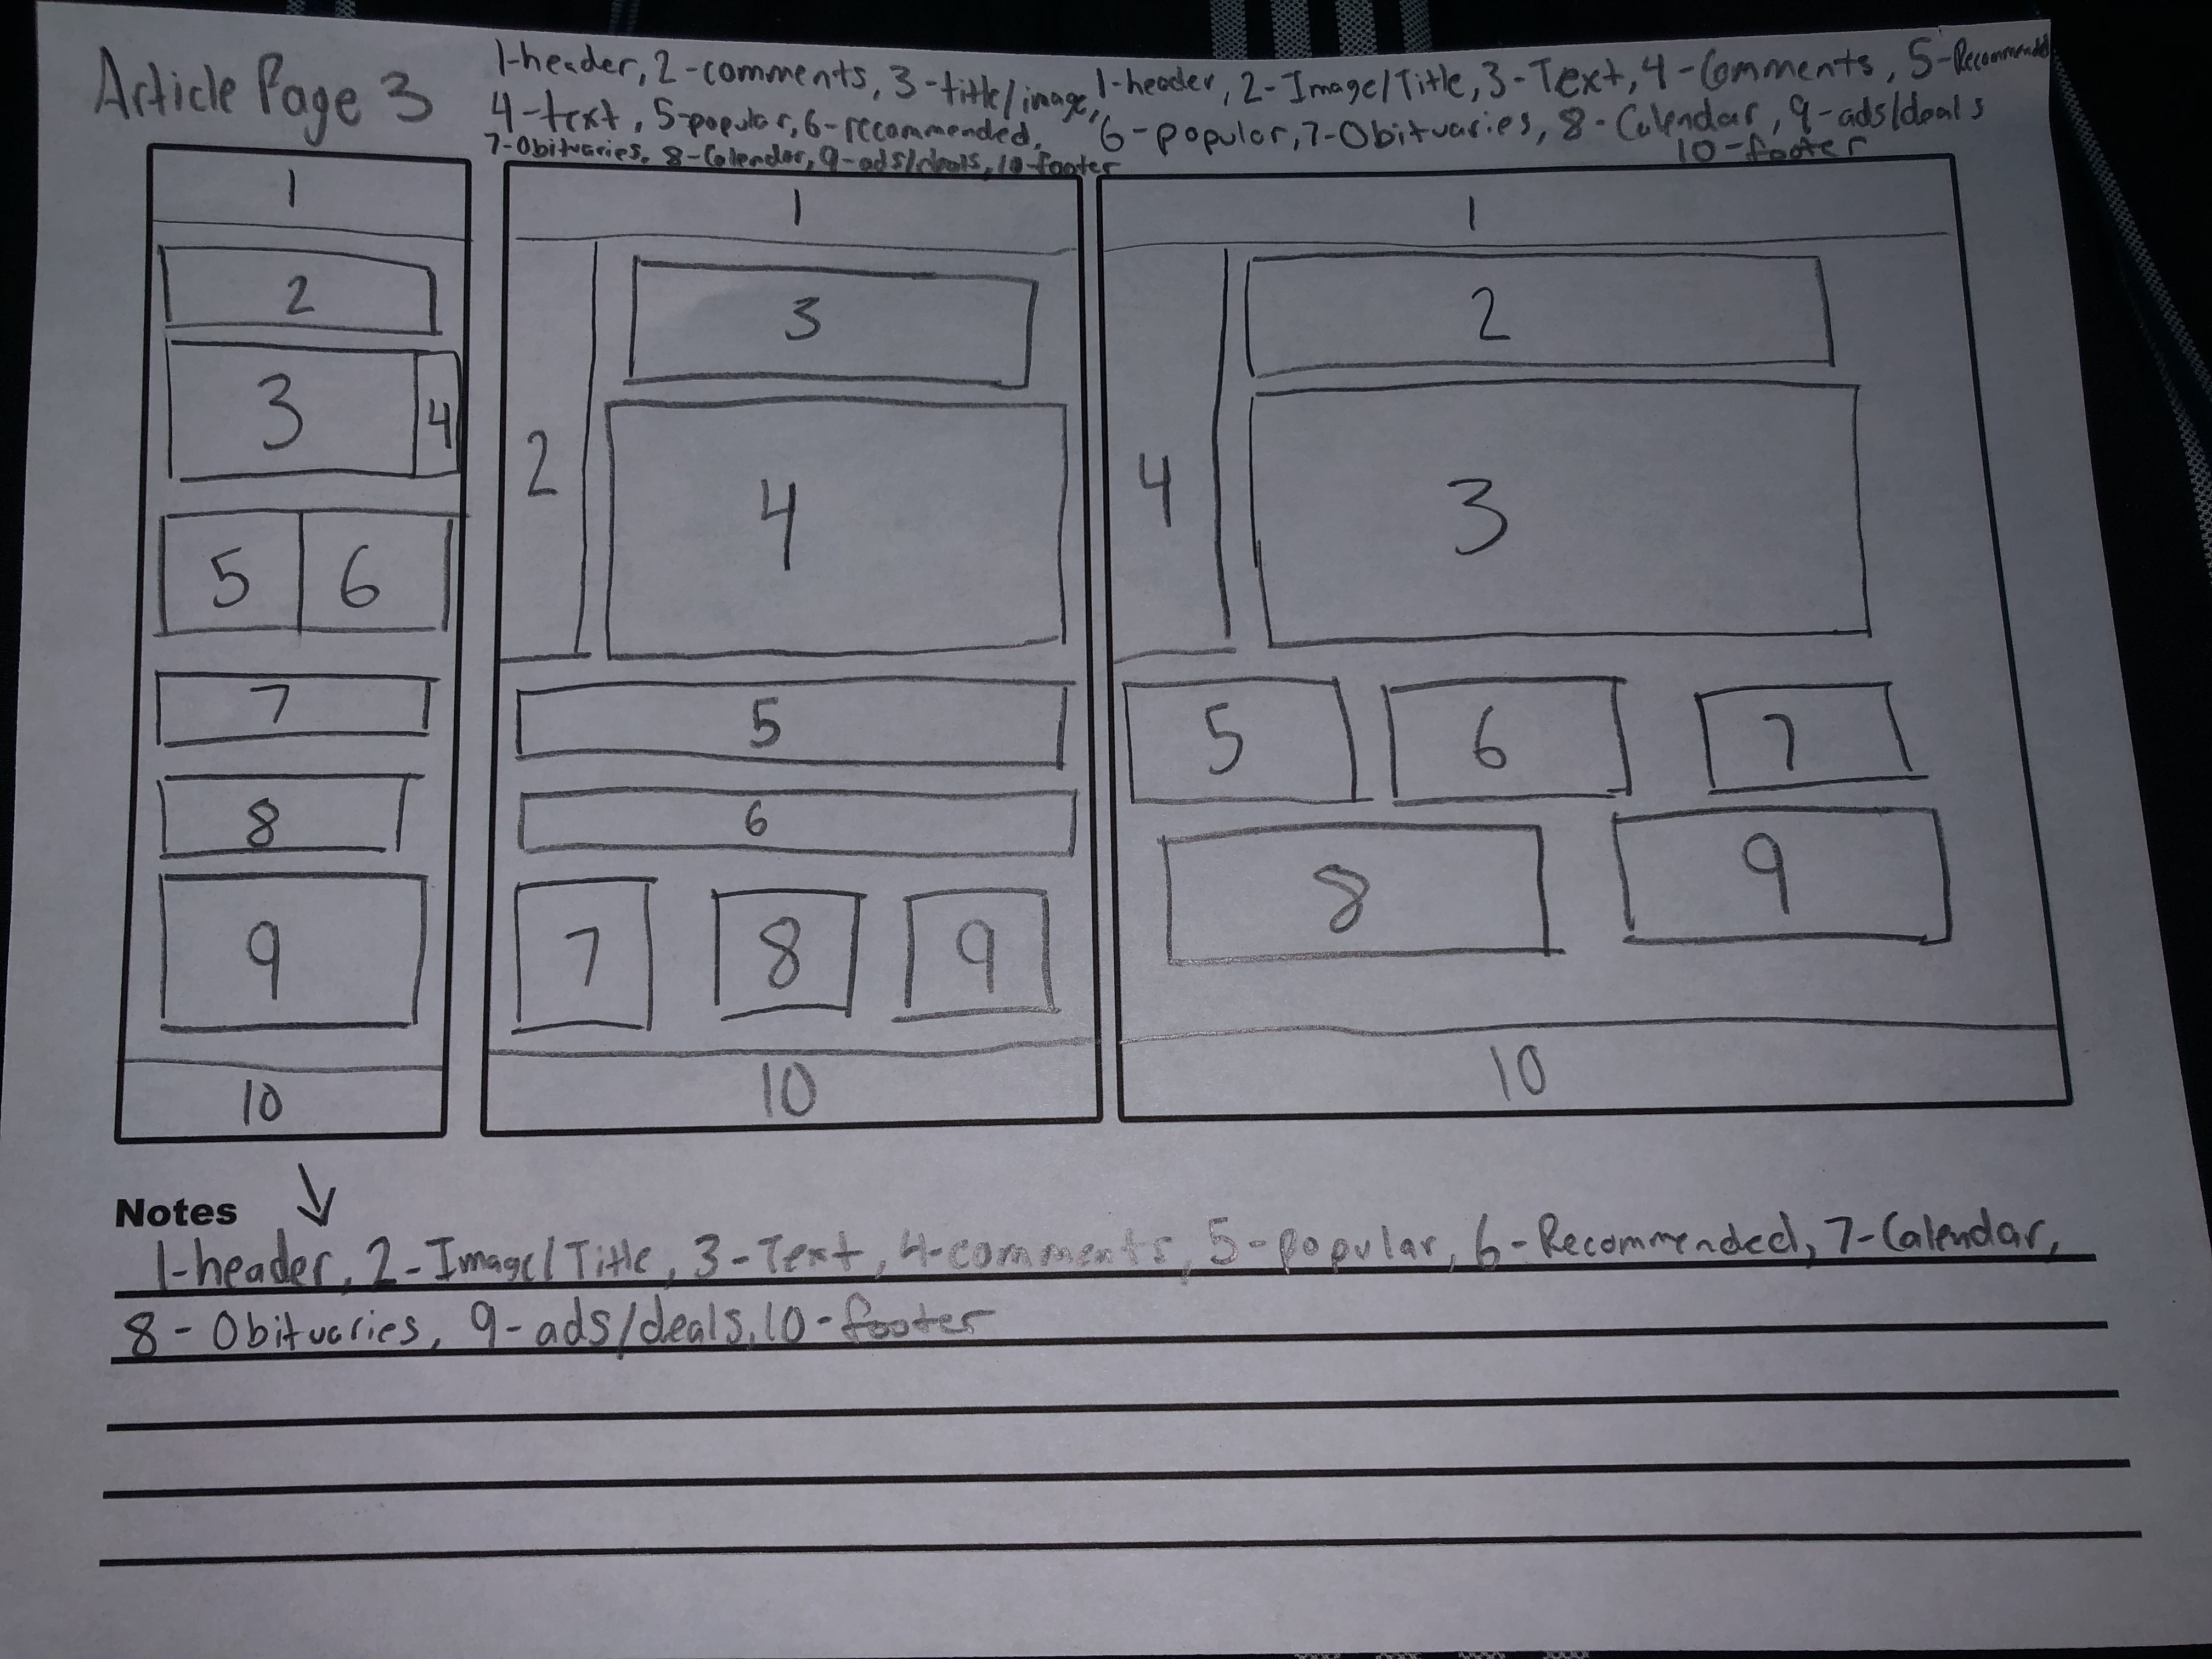 Article Page 3
1-header, 2-comments, 3-title/image,
4-text, 5-popular, 6-recommended,
7-Obituaries, 8-Calendar, 9-ads/deals, 10-footer
1-header, 2-Image/Title, 3-Text, 4-Comments, 5-Recommended
6-popular, 7-Obituaries, 8-Calendar, 9-ads/deals
10-footer
1
2
3 4
5 6
7
8
9
10
1
3
2
4
5
6
7 8 9
10
1
2
4 3
5 6 7
8 9
10
Notes
1-header, 2-Image/Title, 3-Text, 4-comments, 5-popular, 6-Recommended, 7-Calendar,
8-Obituaries, 9-ads/deals, 10-footer